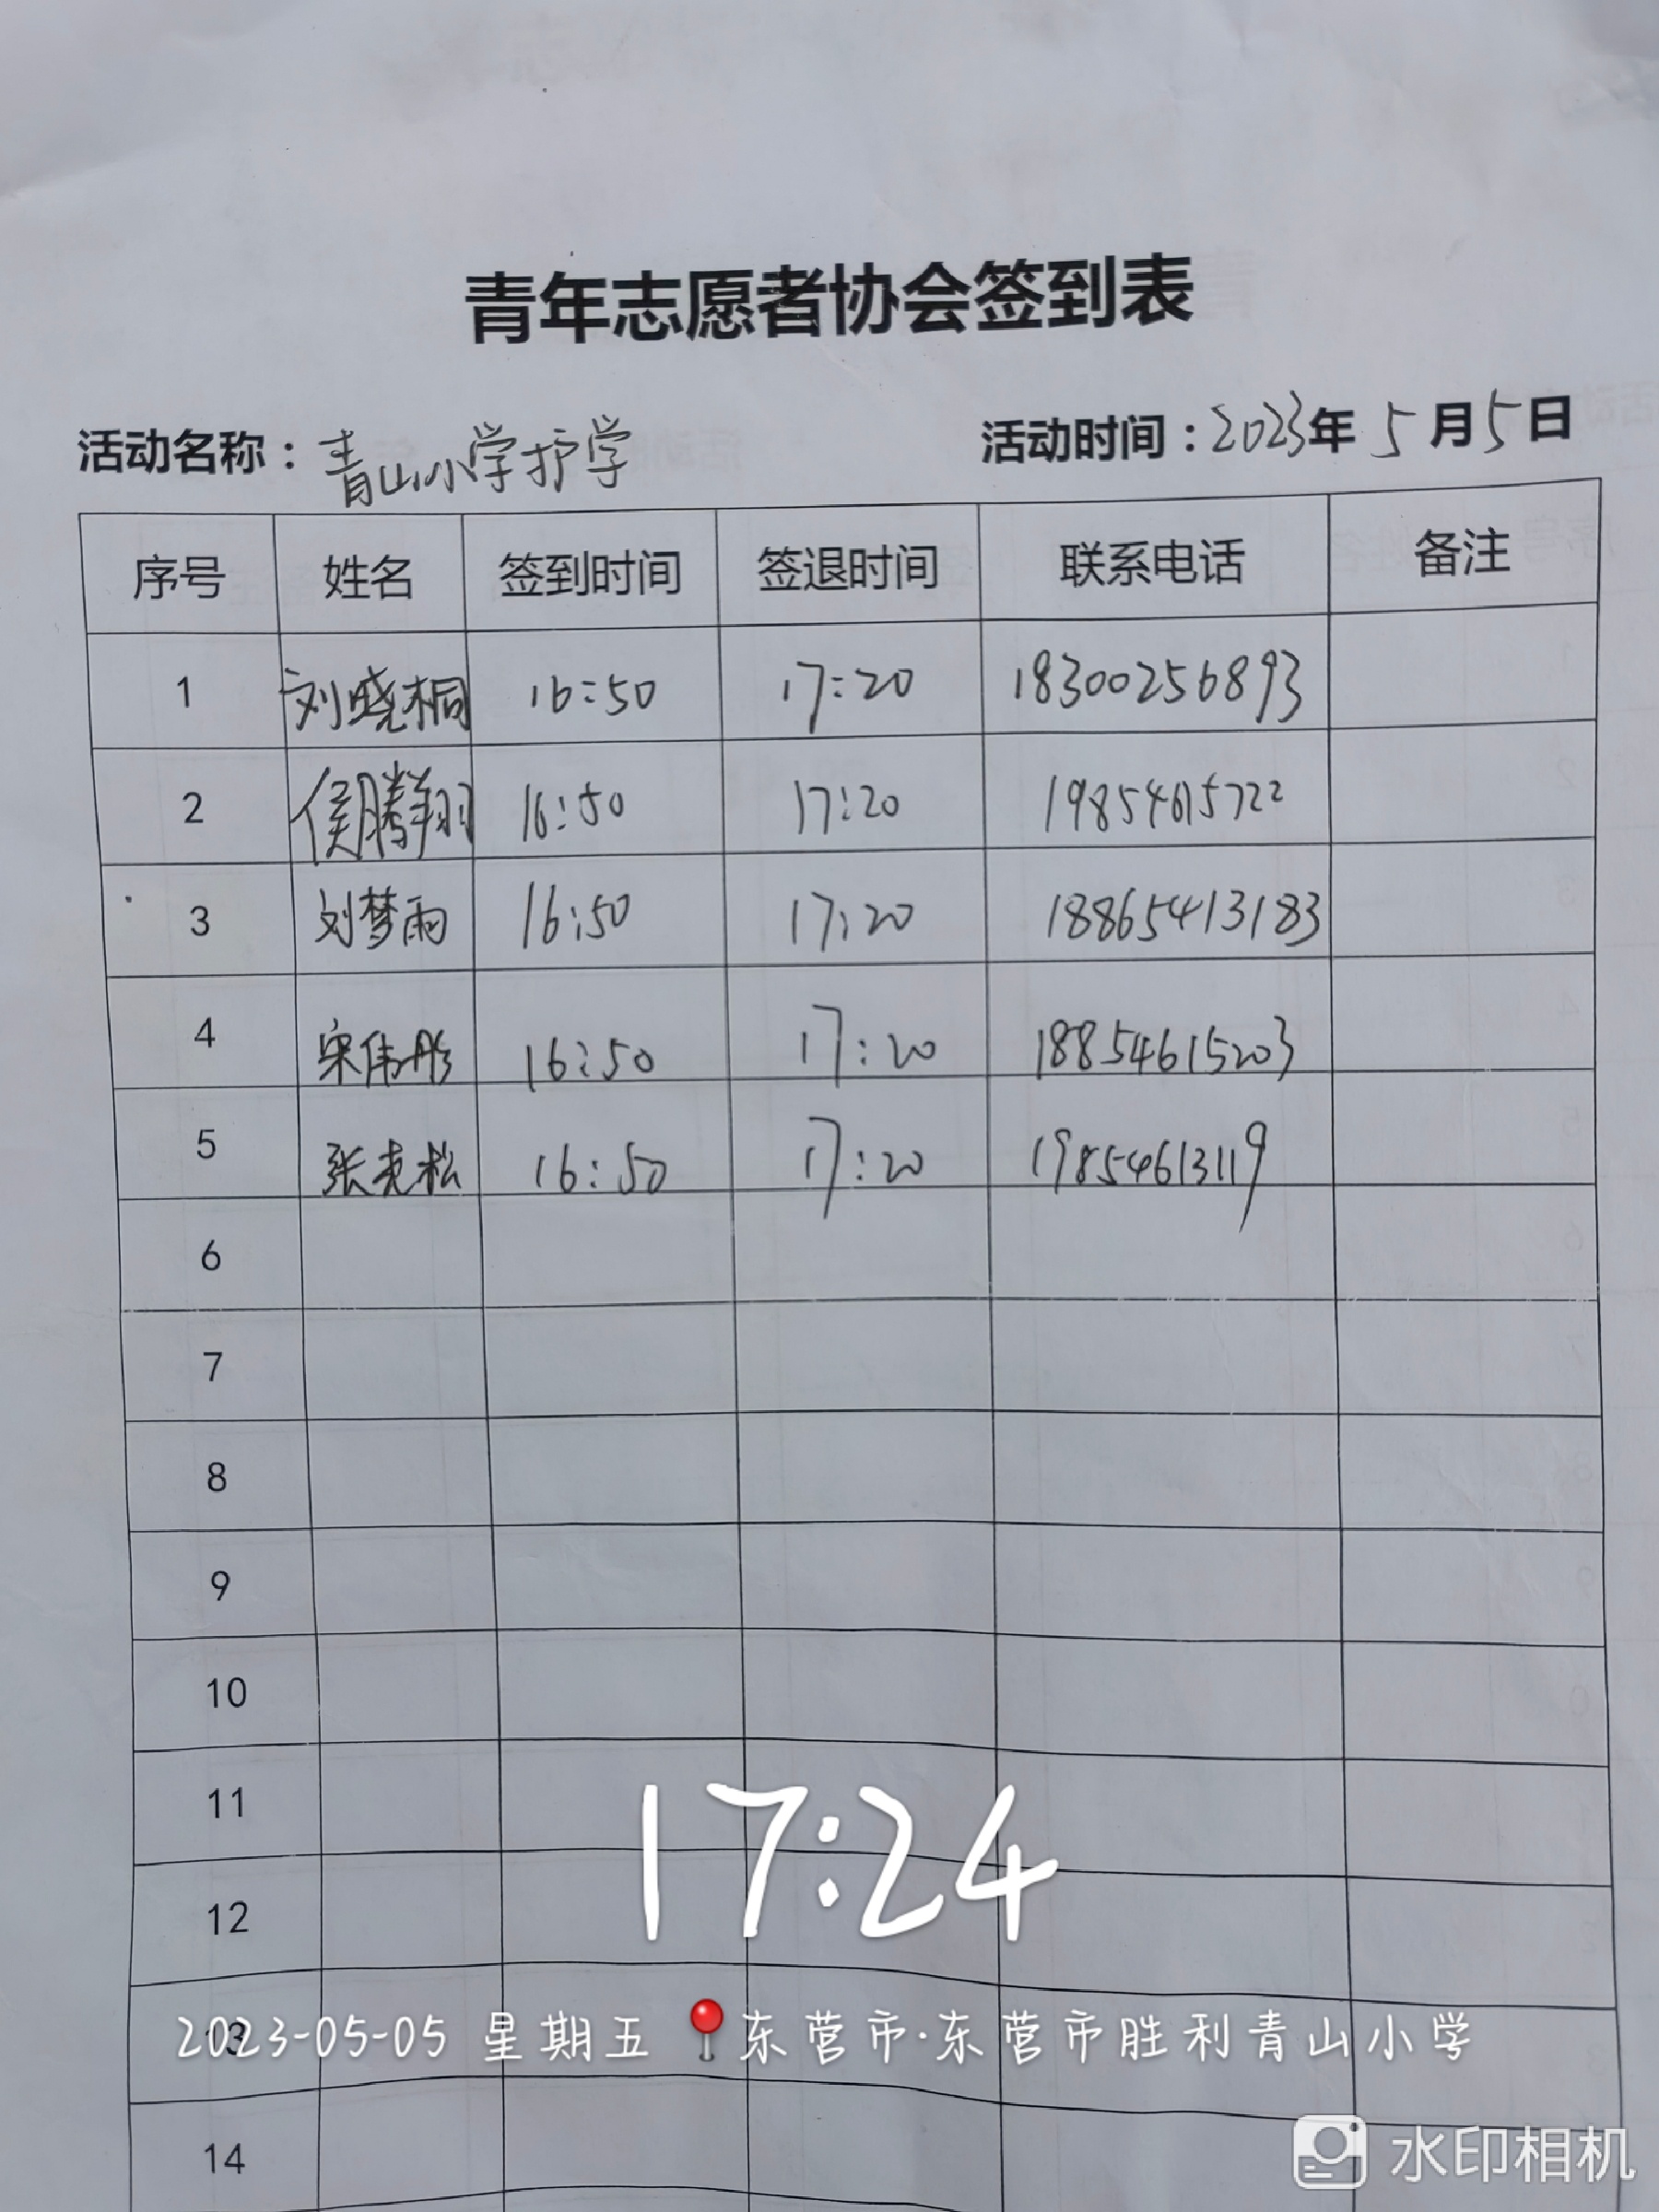 青年志愿者协会签到表
活动名称：青山小学护学 活动时间：2023年5月5日
序号 姓名 签到时间 签退时间 联系电话 备注
1 刘晓桐 16:50 17:20 18300256893
2 侯腾翔 16:50 17:20 19854615722
3 刘梦雨 16:50 17:20 18865413183
4 宋伟彤 16:50 17:20 18854615203
5 张克松 16:50 17:20 19854613119
6
7
8
9
10
11
17:24
12
13
2023-05-05 星期五 东营市·东营市胜利青山小学
14
水印相机